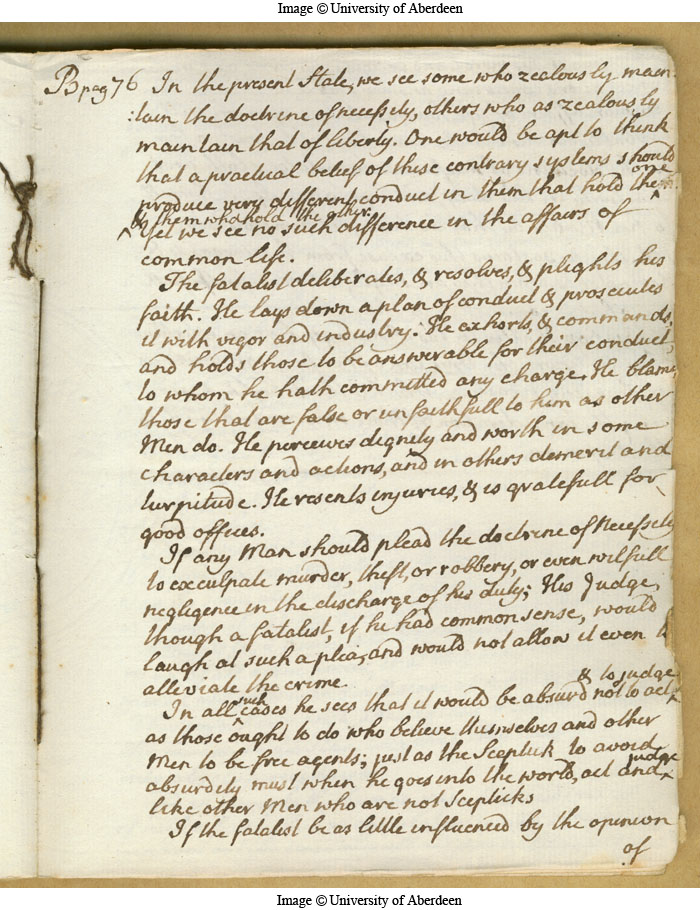 Image © University of Aberdeen
B pag 76 In the present State, we see some who zealously main
:tain the doctrine of necessity, others who as zealously
maintain that of liberty. One would be apt to think
that a practical belief of these contrary systems should
produce very different conduct in them that hold the one
& them who hold the other.
Yet we see no such difference in the affairs of
common life.
The fatalist deliberates, & resolves, & plights his
faith. He lays down a plan of conduct & prosecutes
it with vigor and industry. He exhorts, & commands,
and holds those to be answerable for their conduct,
to whom he hath committed any charge. He blames
those that are false or unfaithfull to him as other
Men do. He perceives dignity and worth in some
characters and actions, and in others demerit and
turpitude. He resents injuries, & is gratefull for
good offices.
If any Man should plead the doctrine of Necessity
to exculpate murder, theft, or robbery, or even wilfull
negligence in the discharge of his duty; His Judge,
though a fatalist, if he had common sense, would
laugh at such a plea, and would not allow it even to
alleviate the crime.
In all such cases he sees that it would be absurd not to act & to judge
as those ought to do who believe themselves and other
Men to be free agents; just as the Sceptick to avoid
absurdity must when he goes into the world, act and judge
like other Men who are not Scepticks
If the fatalist be as little influenced by the opinion
of
Image © University of Aberdeen